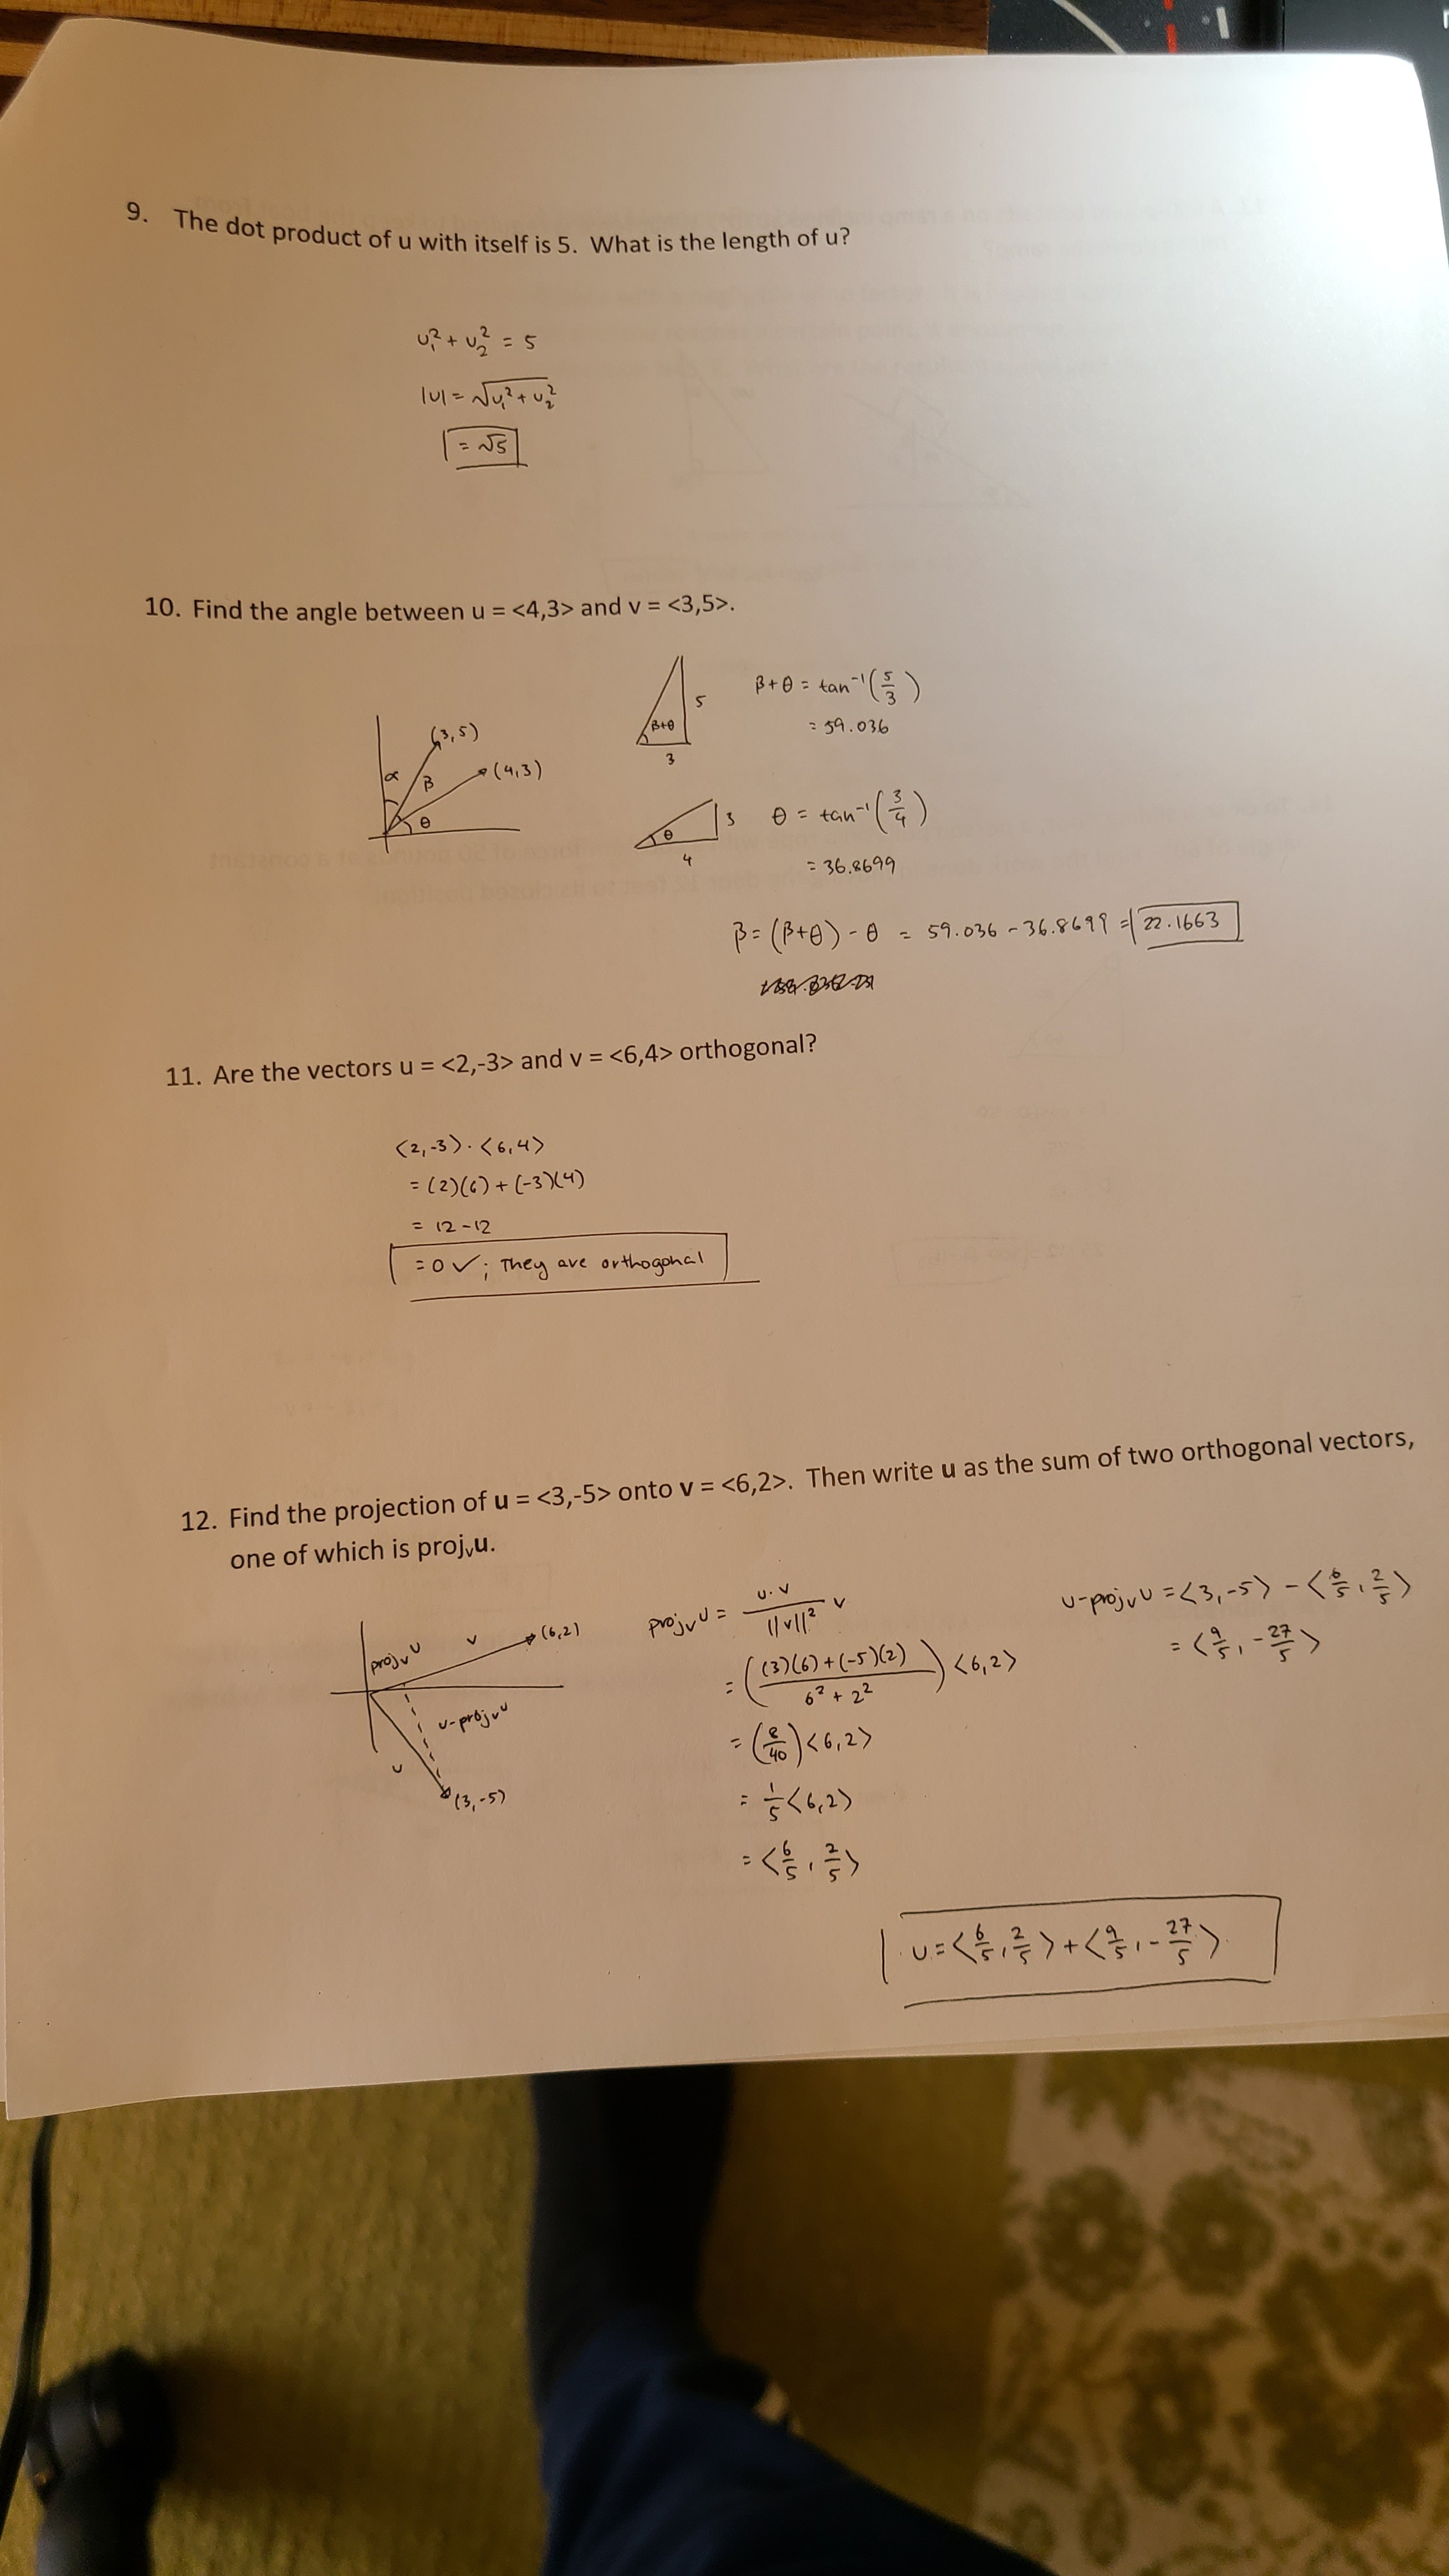 9. The dot product of u with itself is 5. What is the length of u?
u₁² + u₂² = 5
|u| = √u₁² + u₂²
= √5
10. Find the angle between u = <4,3> and v = <3,5>.
(3,5)
(4,3)
α
β
θ
β+θ
5
3
β+θ = tan⁻¹(5/3)
= 59.036
θ
3
4
θ = tan⁻¹(3/4)
= 36.8699
β = (β+θ) - θ = 59.036 - 36.8699 = 22.1663
11. Are the vectors u = <2,-3> and v = <6,4> orthogonal?
<2,-3> · <6,4>
= (2)(6) + (-3)(4)
= 12 - 12
= 0 ✓; They are orthogonal
12. Find the projection of u = <3,-5> onto v = <6,2>. Then write u as the sum of two orthogonal vectors,
one of which is projᵥu.
projᵥu
v
(6,2)
u-projᵥu
u
(3,-5)
projᵥu = u·v / ||v||² v
= ((3)(6)+(-5)(2) / 6² + 2²) <6,2>
= (8/40) <6,2>
= 1/5 <6,2>
= <6/5, 2/5>
u-projᵥu = <3,-5> - <6/5, 2/5>
= <9/5, -27/5>
u = <6/5, 2/5> + <9/5, -27/5>